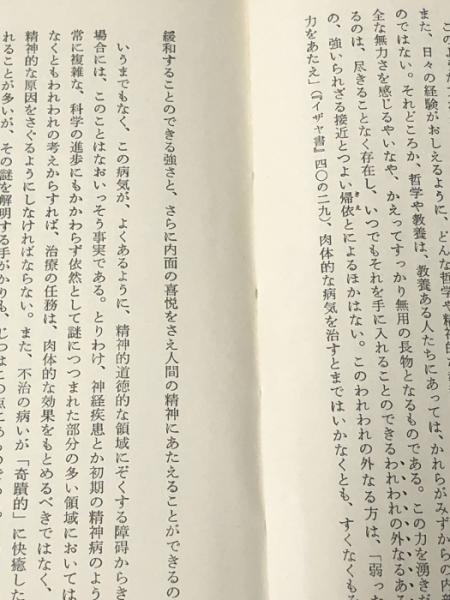 このような
また、日々の経験がおしえるように、どんな哲学や精神的な
のではない。それどころか、哲学や教養は、教養ある人たちにあっては、かれらがみずからの内部
全な無力さを感じるやいなや、かえってすっかり無用の長物となるものである。この力を湧きが
るのは、尽きることなく存在し、いつでもそれを手に入れることのできるわれわれの外なるある
の、強いられざる接近とつよい帰依とによるほかはない。このわれわれの外なる方は、「弱った
力をあたえ」(『イザヤ書』四〇の二九)、肉体的な病気を治すとまではいかなくとも、すくなくも
緩和することのできる強さと、さらに内面の喜悦をさえ人間の精神にあたえることができるの
いうまでもなく、この病気が、よくあるように、精神的道徳的な領域にぞくする障碍からき
場合には、このことはなおいっそう事実である。とりわけ、神経疾患とか初期の精神病のよう
常に複雑な、科学の進歩にもかかわらず依然として謎につつまれた部分の多い領域においては
なくともわれわれの考えからすれば、治療の任務は、肉体的な効果をもとめるべきではなく、
精神的な原因をさぐるようにしなければならない。また、不治の病いが「奇蹟的」に快癒した
れることが多いが、その謎を解明する手がかりも、じつはこの点にあるのである